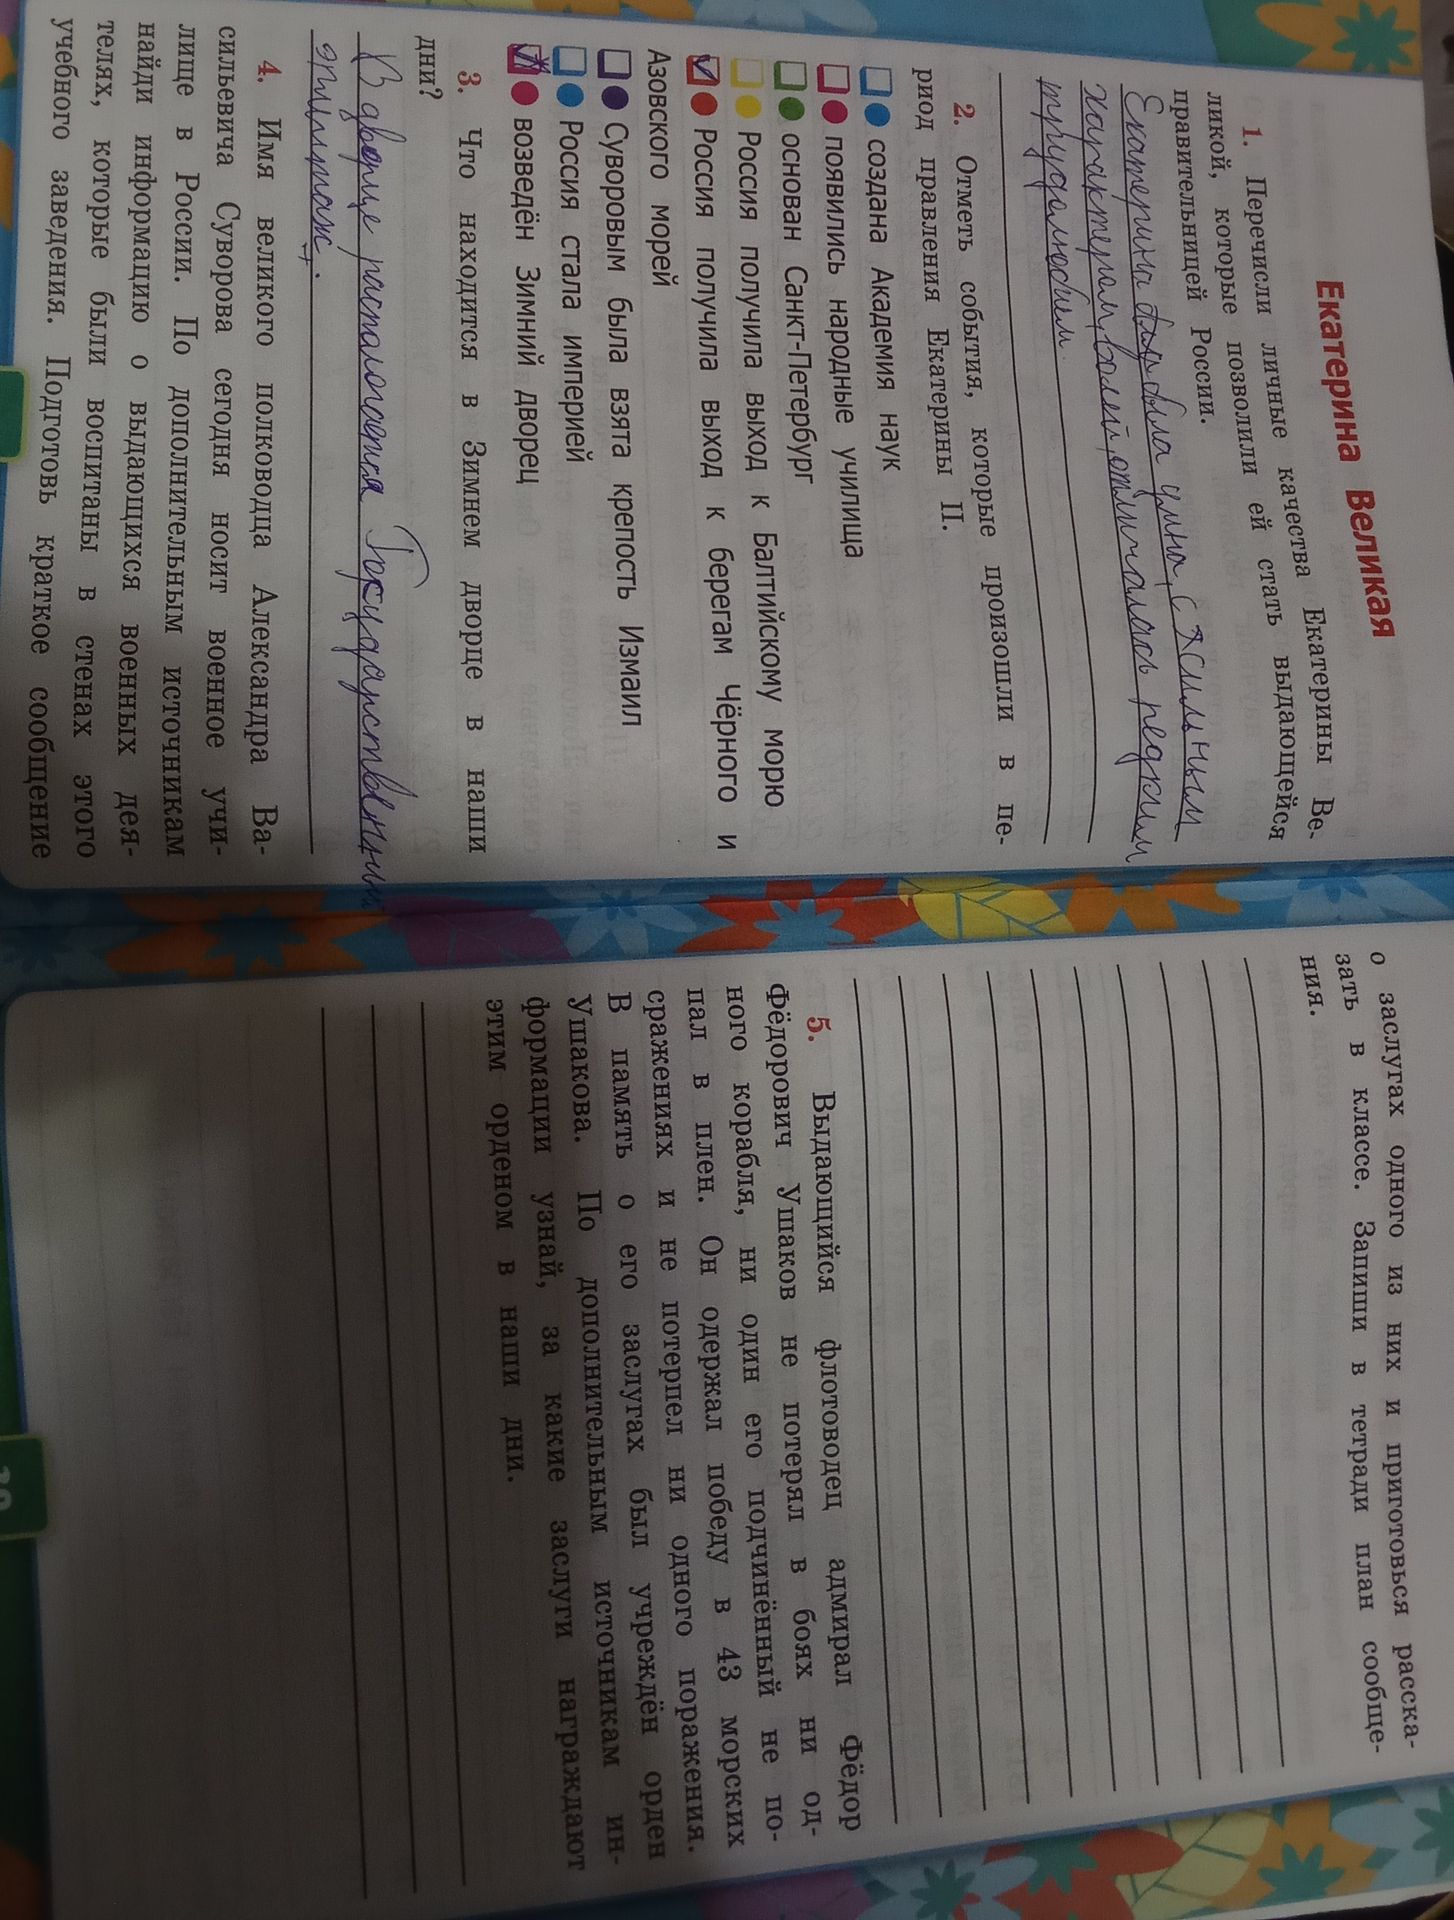 Екатерина Великая
1. Перечисли личные качества Екатерины Ве-
ликой, которые позволили ей стать выдающейся
правительницей России.
Екатерина была умна, с сильным
характером, волей, отличалась редким
трудолюбием
2. Отметь события, которые произошли в пе-
риод правления Екатерины II.
создана Академия наук
появились народные училища
основан Санкт-Петербург
Россия получила выход к Балтийскому морю
Россия получила выход к берегам Чёрного и
Азовского морей
Суворовым была взята крепость Измаил
Россия стала империей
возведён Зимний дворец
3. Что находится в Зимнем дворце в наши
дни?
В дворце распологается Государственный
эрмитаж.
4. Имя великого полководца Александра Ва-
сильевича Суворова сегодня носит военное учи-
лище в России. По дополнительным источникам
найди информацию о выдающихся военных дея-
телях, которые были воспитаны в стенах этого
учебного заведения. Подготовь краткое сообщение
о заслугах одного из них и приготовься расска-
зать в классе. Запиши в тетради план сообще-
ния.
5. Выдающийся флотоводец адмирал Фёдор
Фёдорович Ушаков не потерял в боях ни од-
ного корабля, ни один его подчинённый не по-
пал в плен. Он одержал победу в 43 морских
сражениях и не потерпел ни одного поражения.
В память о его заслугах был учреждён орден
Ушакова. По дополнительным источникам ин-
формации узнай, за какие заслуги награждают
этим орденом в наши дни.